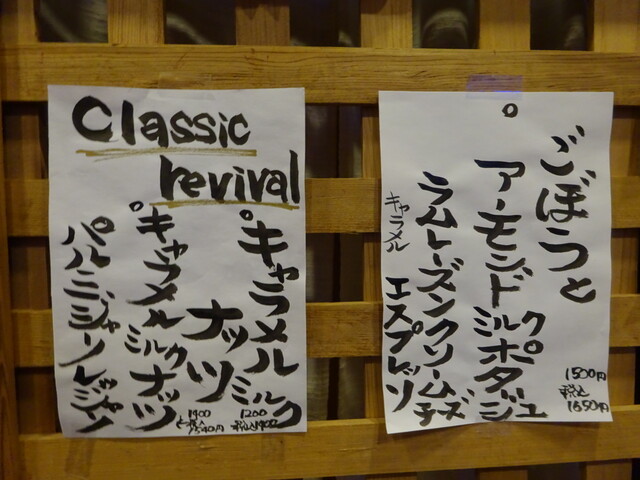 Classic
revival
°キャラメル
ナッツ
ミルク
°キャラメル
ミルクナッツ
パルミジャーノレッジャーノ
1400
1540円
1200
ごぼうと
アーモンド
ミルクポタージュ
ラムレーズンクリームチーズ
キャラメル
エスプレッソ
1500円
税込
1650円